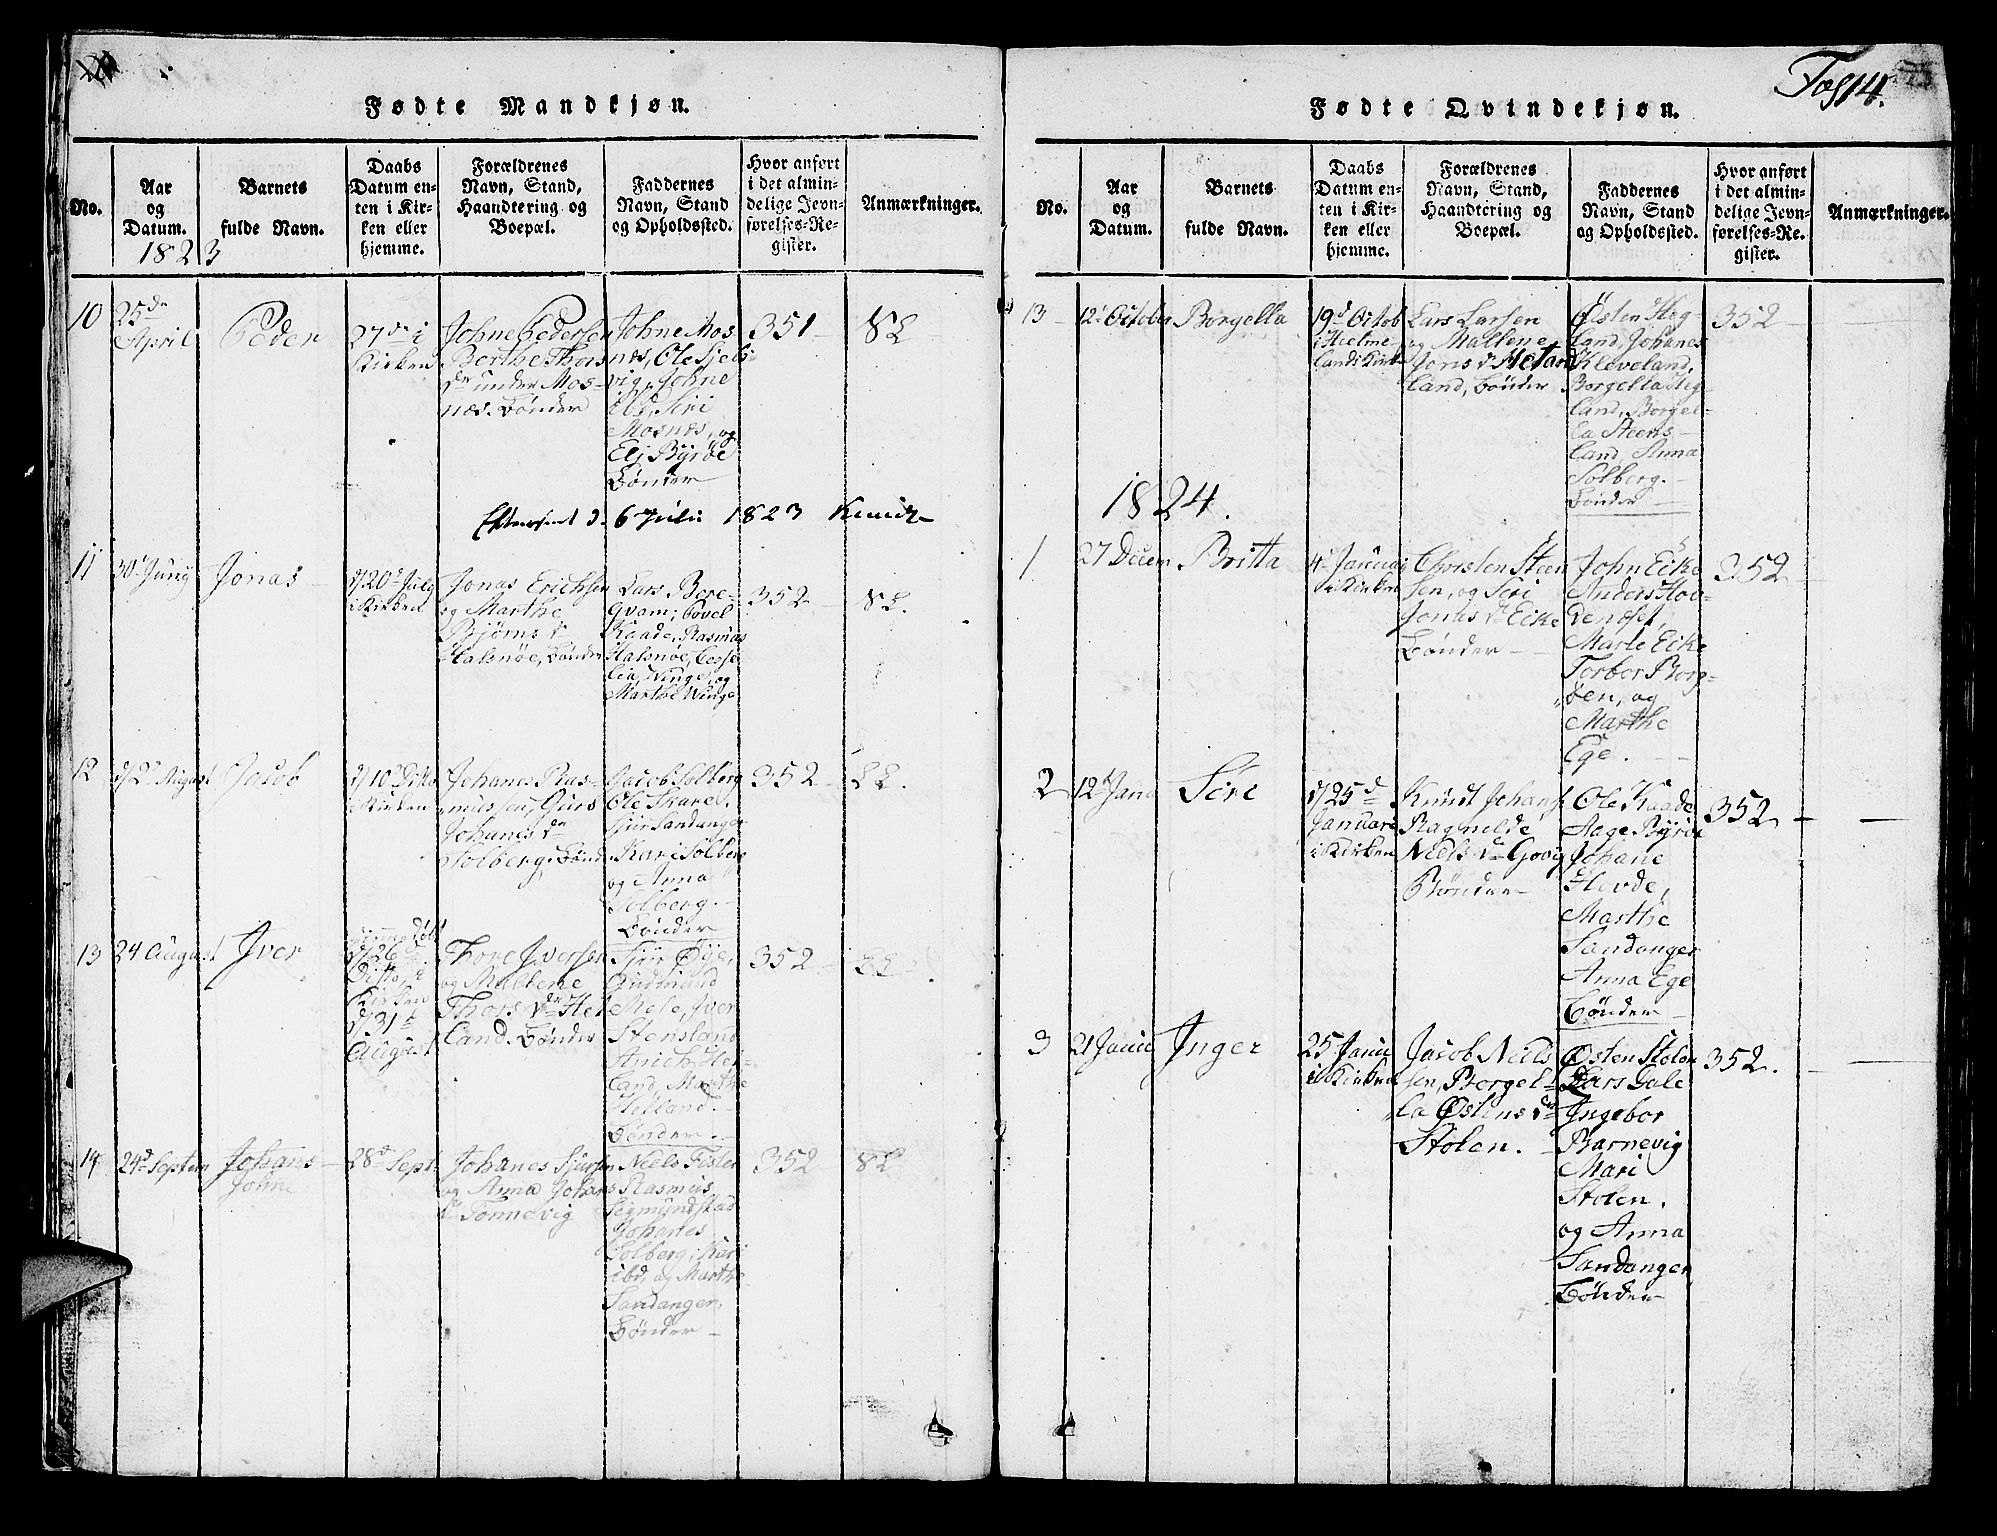 Fødte Mandkjøn.
No.
Aar
og
Datum.
1823
Barnets
fulde Navn.
Daabs
Datum en-
ten i Kir-
ken eller
hjemme.
Forældrenes
Navn, Stand,
Haandtering og
Boepæl.
Faddernes
Navn, Stand
og Opholdssted.
Hvor anført
i det almin-
delige Jevn-
førelses-Re-
gister.
Anmærkninger.
10
25de
April
Peder
27de i
Kirken
Johne Pedersen
Berthe Thors
dr under Mos-
næs. Bønder
Johne Mos
næs, Ole
vig, Johne
ibd, Siri
Mosnæs, og
Eli Byrøe
Bønder
351
d. 6 Julii 1823
11
30 Juny
Jonas
d 20d July
i Kirken
Jonas Erichsen
og Marthe
Bjørns dr
Halsnøe, Bønder
Lars Berre-
Qvam, Povel
Kaade, Rasmus
Halsnøe,
Winge, og
Marthe Winge
352
12
d 2d August
Jacob
d 10d Ditto
i Kirken
Johanes Ras-
mussen, Gurs
Johanes dr
Solberg. Bønd
Jacob Solberg
Ole Skare,
Siur Sandanger
Kari Solberg
og Anna
Solberg.
Bønder
352
13
24 August
Iver
hjemme døbt
d 26
Ditto, i
Kirken
d 31t
August
Thore Iversen
og Mallene
Thors dr Hel
land. Bønder
Siur Øye,
Gudmund
Mele, Iver
Stensland
Hel-
land, Marthe
Helland.
Bønder.
352
14
24d Septem
Johans
John
28d Sept
Johanes Sjursen
og Anna Johans
dr Tonnevig
Neels Fister
Rasmus
Segmundstad
Johanes
Solberg, Kari
ibd, og Marthe
Sandanger,
Bønder
352
Fødte Qvindekjøn.
14.
No.
Aar
og
Datum.
Barnets
fulde Navn.
Daabs
Datum en-
ten i Kir-
ken eller
hjemme.
Forældrenes
Navn, Stand,
Haandtering og
Boepæl.
Faddernes
Navn, Stand
og Opholdssted.
Hvor anført
i det almin-
delige Jevn-
førelses-Re-
gister.
Anmærkninger.
13
12t October
Borgella
19d Octob
i Hielme
lands Kirke
Lars Larsen
og Mallene
Jons dr
land, Bønder
Østen Heg-
land, Johanes
Kleveland,
Borgella Heg-
land, Borgel-
la Steens-
land, Anna
Solberg.
Bønder
352
1824.
1
27 Decem
Britta
4d Januari
i Kirken
Christen Steen
sen, og Siri
Jonas dr Eike
Bønder
John Eike
Anders Hov-
denæset,
Marte Eike
Torbor Borg-
øen, og
Marthe
Ege.
352
2
12t Janu
Siri
d 25d
Januari
i Kirken
Knudt Johans
Ragnilde
Niels dr Govig
Bønder
Ole Kaade
Aage Byrøe
Johane
Hevde,
Marthe
Sandanger
Anna Ege
Bønder
352
3
21 Janu
Inger
25 Janu
i Kirken
Jacob Neils
sen, Borgel-
la Østens dr
Stolen.
Østen Stolen
Lars Gale
Ingebor
Barnevig
Mari
Stolen.
og Anna
Sandanger
Bønder
352.